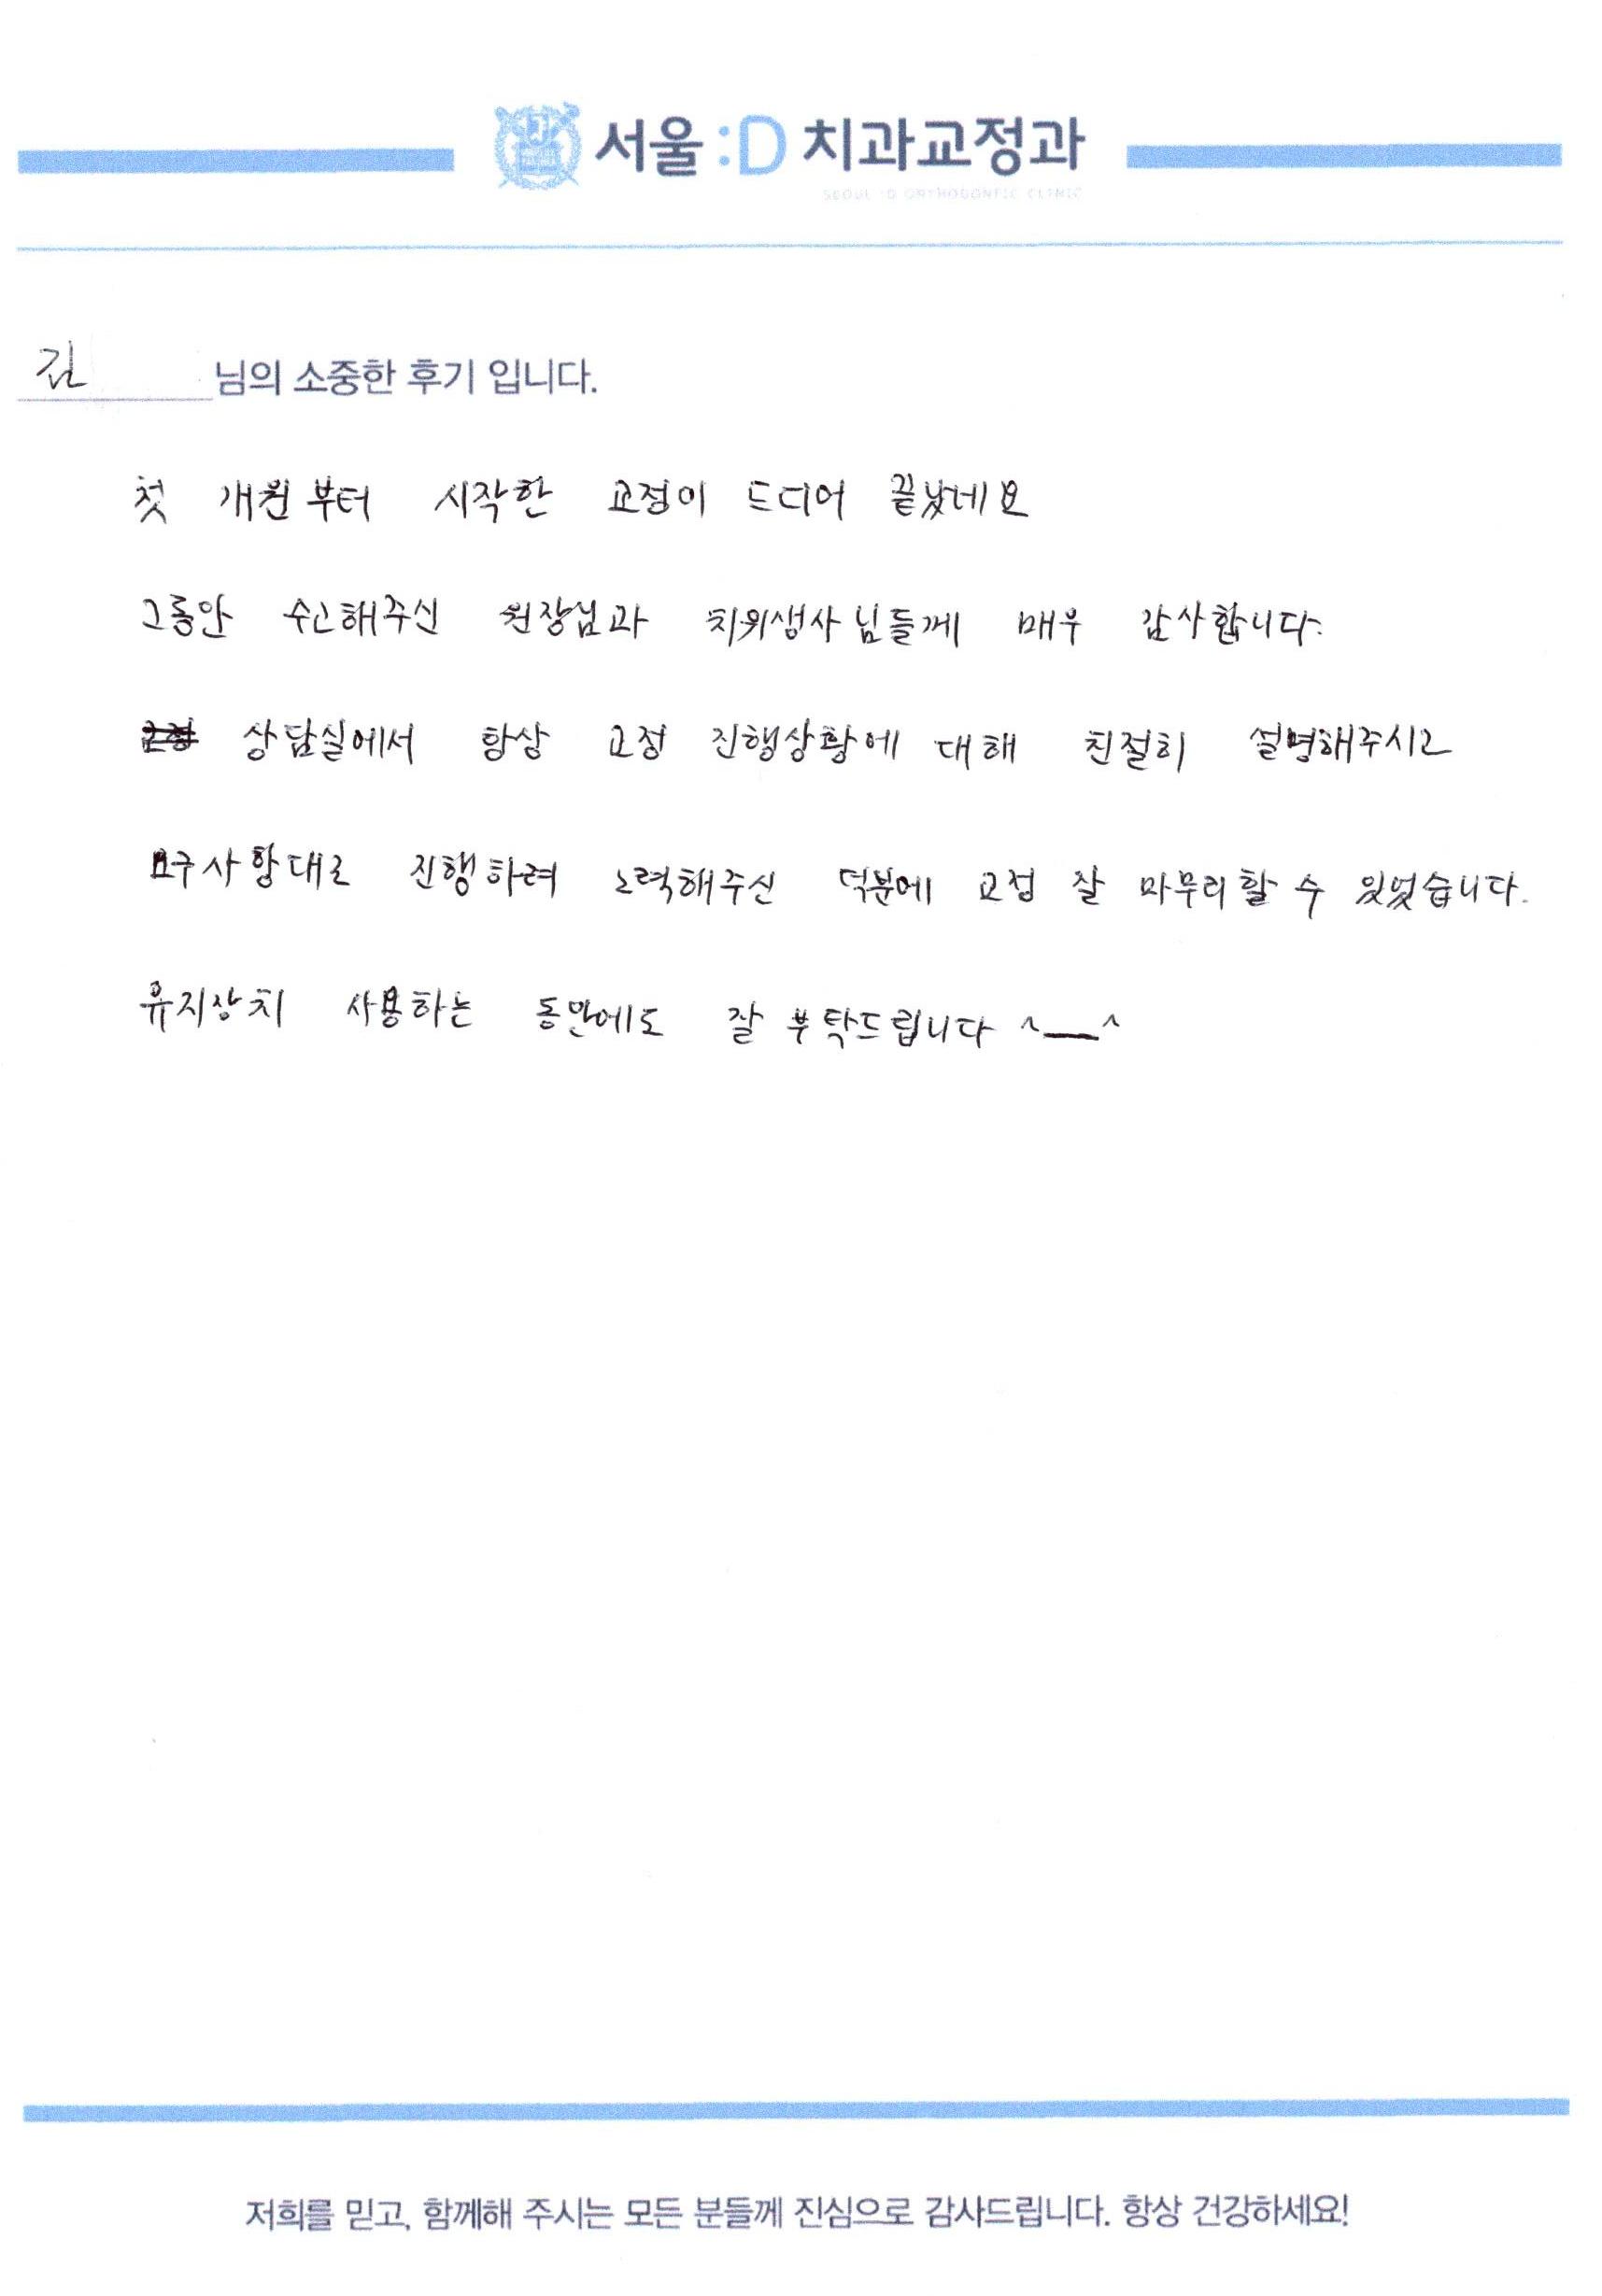 서울:D 치과교정과
SEOUL :D ORTHODONTIC CLINIC
김 님의 소중한 후기 입니다.
첫 개원부터 시작한 교정이 드디어 끝났네요
그동안 수고해주신 원장님과 치위생사님들께 매우 감사합니다.
상담실에서 항상 교정 진행상황에 대해 친절히 설명해주시고
요구사항대로 진행하려 노력해주신 덕분에 교정 잘 마무리할 수 있었습니다.
유지장치 사용하는 동안에도 잘 부탁드립니다 ^__^
저희를 믿고, 함께해 주시는 모든 분들께 진심으로 감사드립니다. 항상 건강하세요!